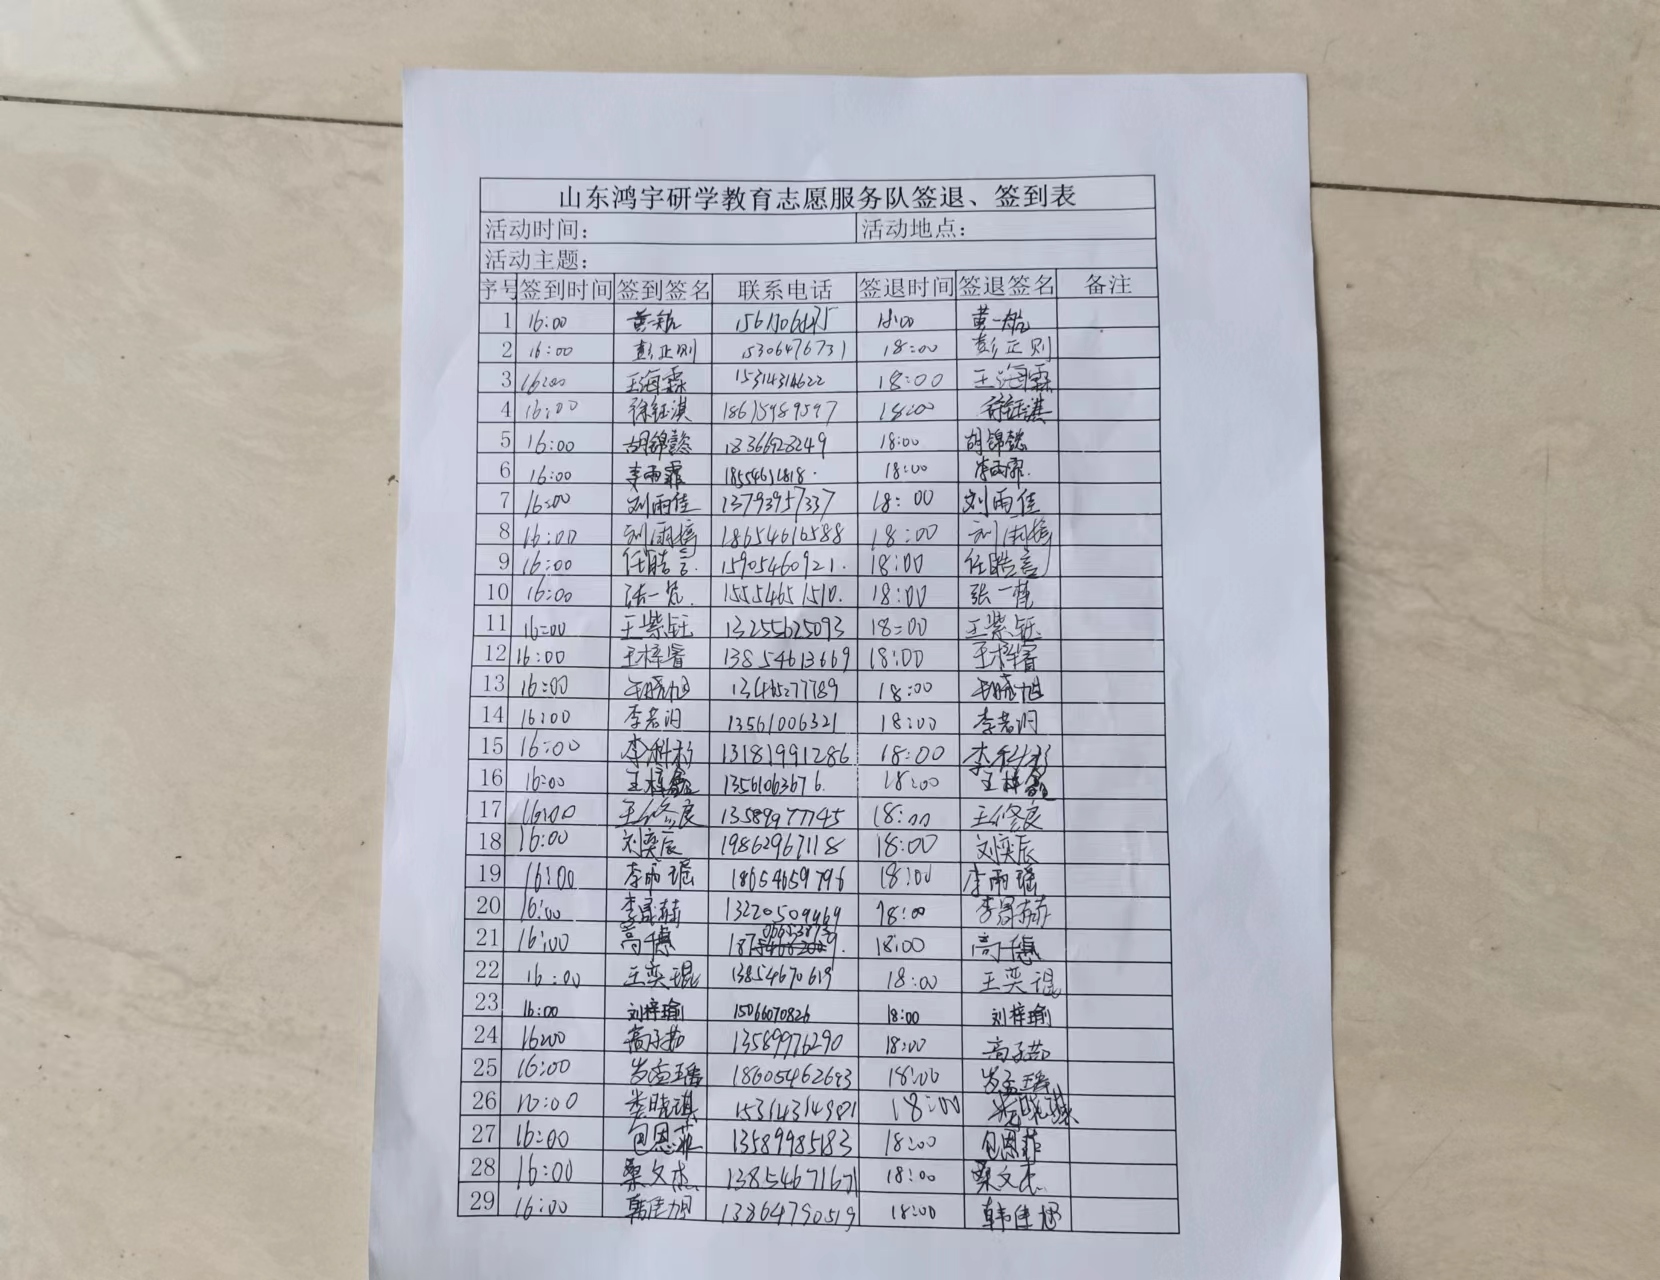 山东鸿宇研学教育志愿服务队签退、签到表
活动时间： 活动地点：
活动主题：
序号 签到时间 签到签名 联系电话 签退时间 签退签名 备注
1 16:00 黄一航 18:00 黄一航
2 16:00 彭正则 15306476731 18:00 彭正则
3 16:00 王海霖 15314314622 18:00 王海霖
4 16:00 徐钰淇 18615989597 18:00 徐钰淇
5 16:00 胡锦懿 18:00 胡锦懿
6 16:00 李雨霏 18:00 李雨霏
7 16:00 刘雨佳 13793957337 18:00 刘雨佳
8 16:00 18654616588 18:00
9 16:00 任皓言 15905460921. 18:00 任皓言
10 16:00 张一 15554651510. 18:00 张一
11 16:00 王紫钰 13255625093 18:00 王紫钰
12 16:00 王梓睿 13854613669 18:00 王梓睿
13 16:00 18:00
14 16:00 李若汐 13561006321 18:00 李若汐
15 16:00 李科杉 13181991286 18:00 李科杉
16 16:00 王梓 13561063676. 18:00 王梓
17 16:00 王修良 13589977745 18:00 王修良
18 16:00 刘奕辰 19862967118 18:00 刘奕辰
19 16:00 李雨瑶 18654659796 18:00 李雨瑶
20 16:00 李晟赫 13220509469 18:00 李晟赫
21 16:00 高 18:00 高
22 16:00 王奕琨 13854670619 18:00 王奕琨
23 16:00 刘梓瑜 15066070826 18:00 刘梓瑜
24 16:00 高子茹 13589976290 18:00 高子茹
25 16:00 18605462693 18:00
26 16:00 娄晓琪 15314314981 18:00
27 16:00 包恩菲 13589985183 18:00 包恩菲
28 16:00 桑文杰 13854671671 18:00 桑文杰
29 16:00 韩佳旭 13864790519 18:00 韩佳旭